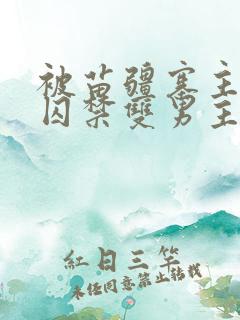 被苗疆寨主
囚禁雙男主
紅日三竿
未经同意禁止转载